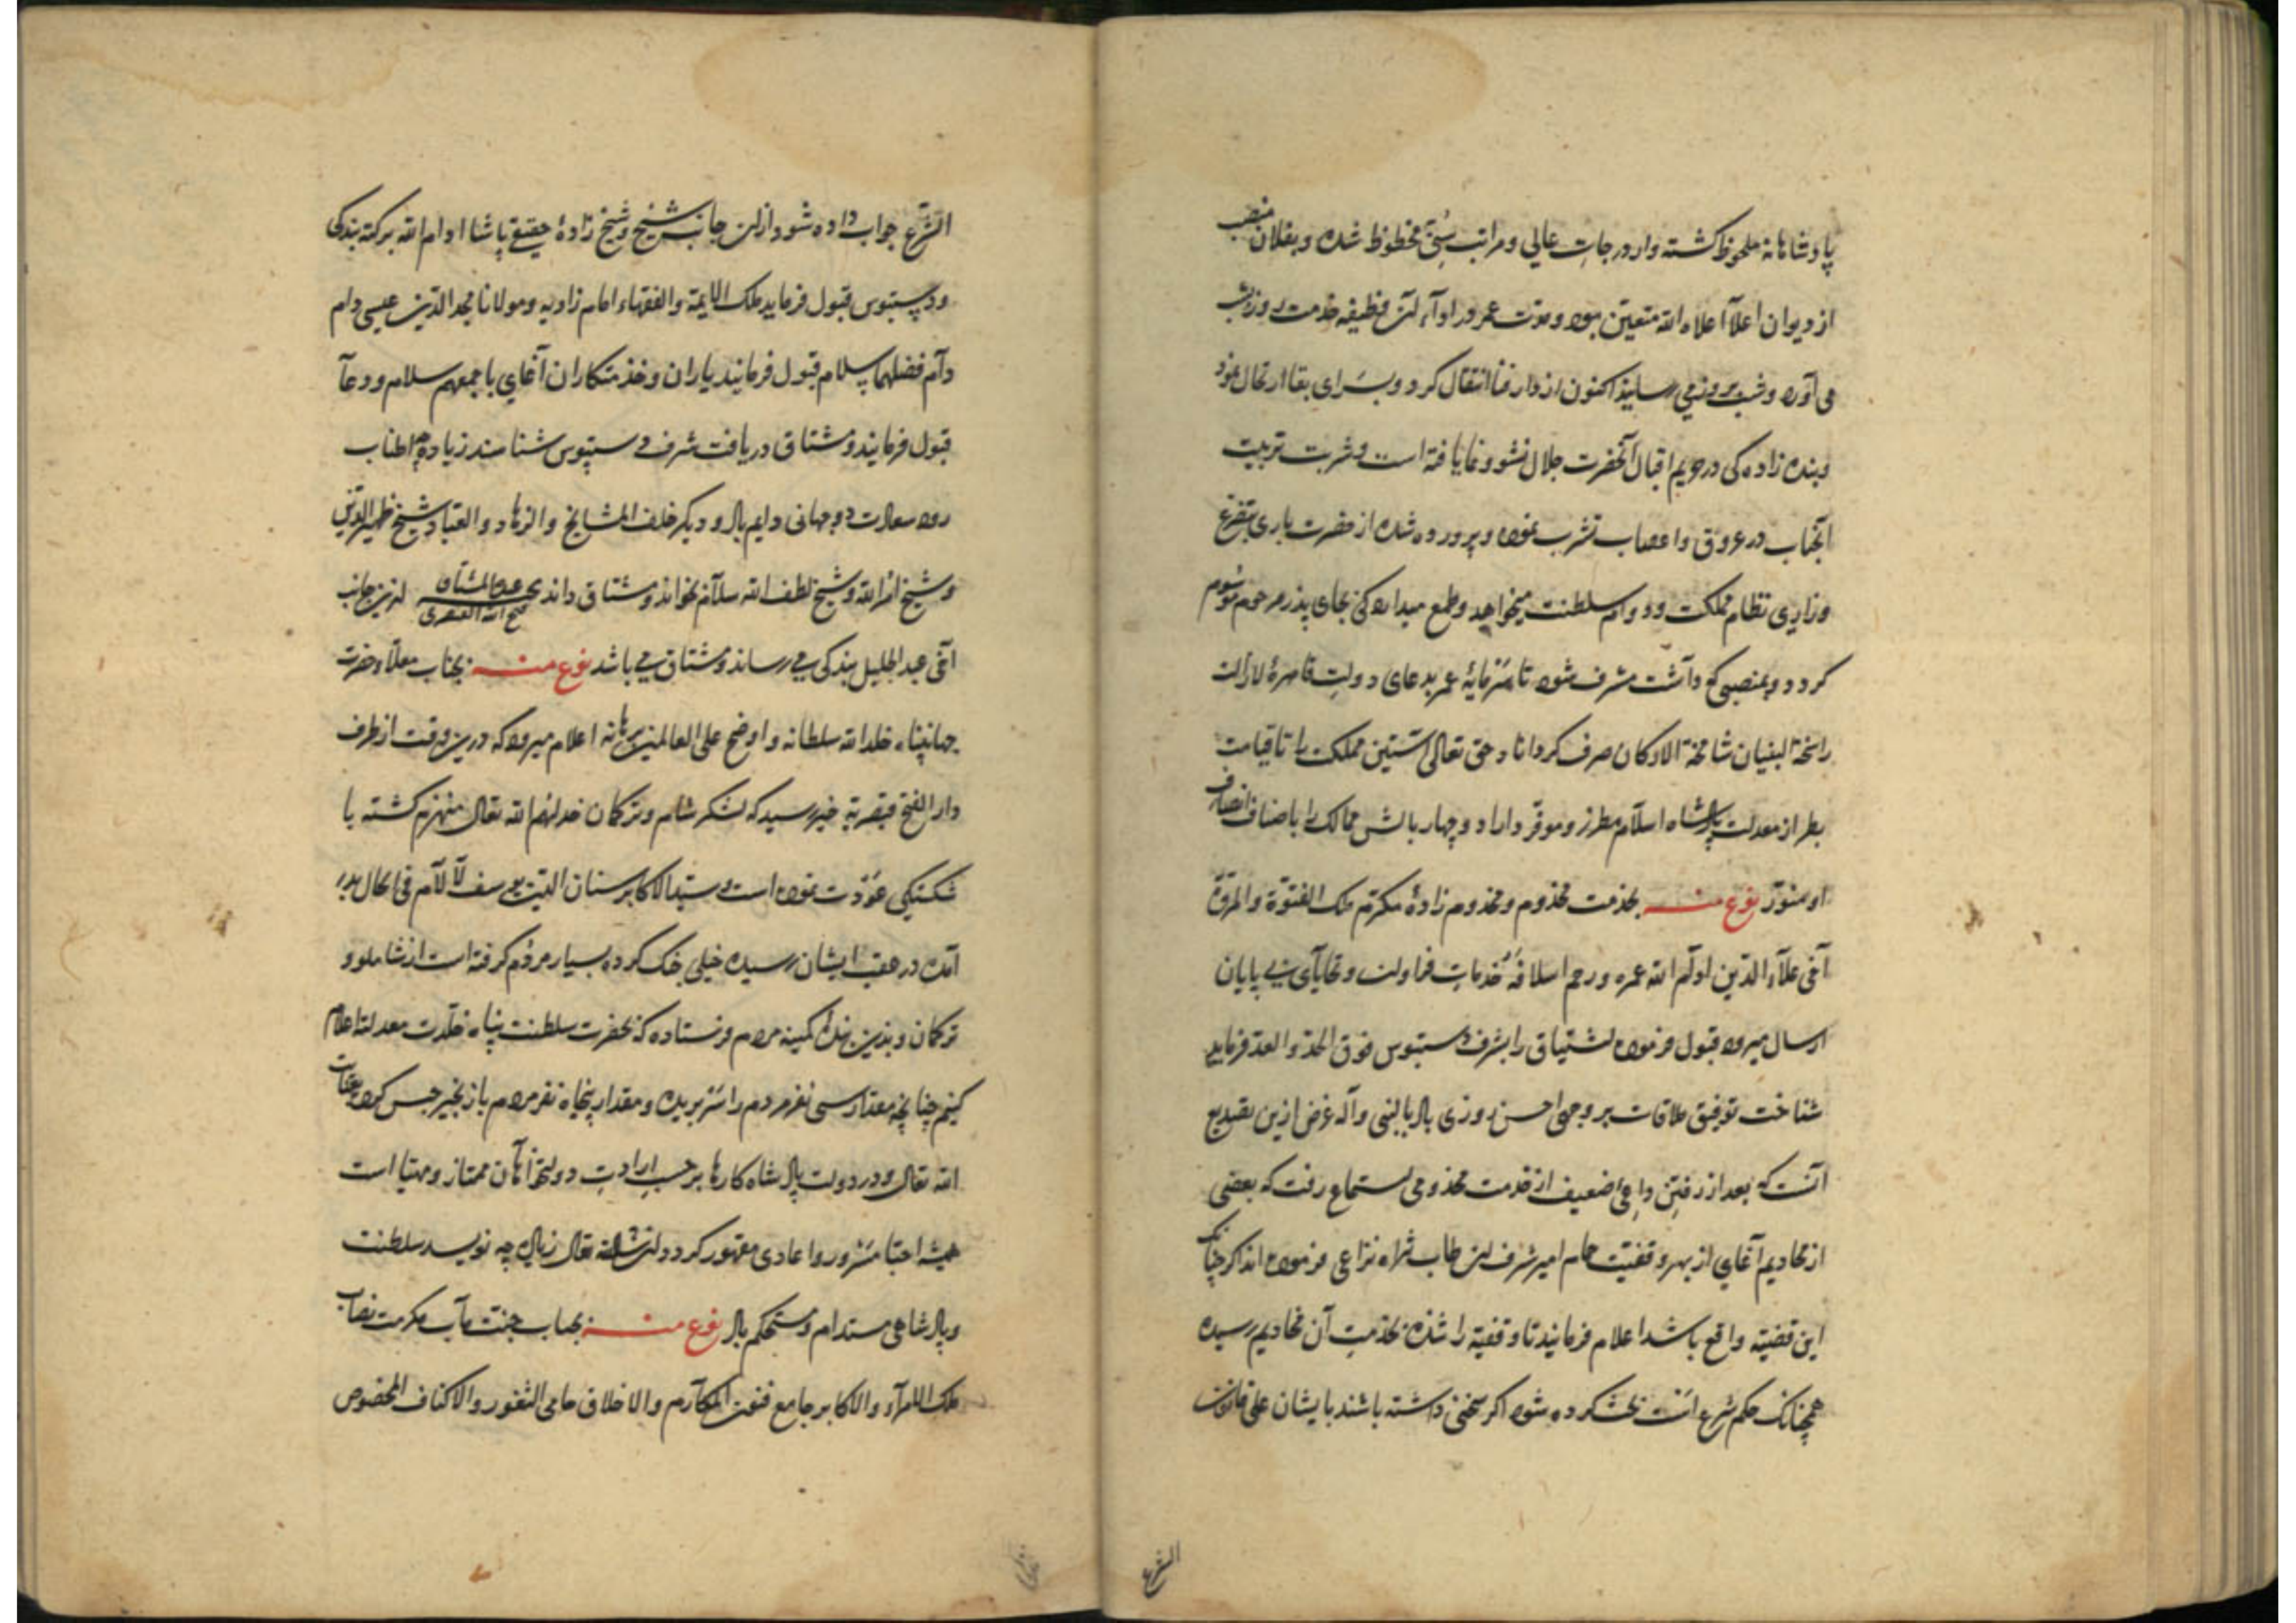 پادشاهانه ملحوظ کشته وار درجات عالی و مراتب سنی محظوظ شده و بفلان منصب
از دیوان اعلا اعلاه الله متعین بوده و مدت عمر در اوآء آن وظیفه خدمت روز بشب
می آورد و شب بروز می رسانید اکنون از دار فنا انتقال کرد و بسرای بقا ارتحال نمود
و بنده زاده کی در حریم اقبال آنحضرت جلال نشو و نما یافته است و شربت تربیت
آنجناب در عروق و اعصاب تشرب نموده و پرورده شده از حضرت باری بتضرع
و زاری نظام مملکت و دوام سلطنت میخواهد و طمع میدارد کی بجای پدر مرحوم موسوم
کردد و بمنصبی که داشت مشرف شود تا سرمایهٔ عمر بدعای دولت قاهرهٔ لازالت
راسخة البنیان شامخة الارکان صرف کرداناد حق تعالی آستین مملکت را تا قیامت
بطراز معدلت پادشاه اسلام مطرز و موقر داراد و چهار بالش ممالک را باصناف انصاف
او منور نوع منه بخدمت مخدوم و مخدوم زادهٔ مکرم ملک الفتوة والمروة
آخی علآء الدین ادام الله عمره و رحم اسلافه خدمات فراوان و تحایای بی پایان
ارسال میرود قبول فرموده اشتیاق را بشرف دستبوس فوق الحد والعد فرماید
شناخت توفیق ملاقات بر وجهی احسن روزی باد بالنبی وآله غرض ازین تصدیع
آنست که بعد از رفتن داعی ضعیف از خدمت مخدومی استماع رفت که بعضی
از مخادیم آغایی از بهر وقفیت حمام امیر شرف الدین طاب ثراه نزاعی فرموده اند اکر چنانک
این قضیه واقع باشد اعلام فرمایند تا وقفیه را شده بخدمت آن مخادیم رسیده
همچنانک حکم شرع است بخش کرده شود اکر سخنی داشته باشند با یشان علی قانون
الشرع
الشرع جواب داده شود از آن جانب شیخ و شیخ زادهٔ حقیقی پاشا ادام الله برکته بندکی
و دستبوس قبول فرماید ملک الایمة والفقهاء امام زادیه و مولانا مجد الدین عیسی دام
دآم فضلهما سلام قبول فرمایند یاران و خدمتکاران آغایی باجمعهم سلام و دعآ
قبول فرمایند و مشتاق دریافت شرف دستبوس شناسند زیاده اطناب
رود سعادت دوجهانی دایم باد و دیکر خلف المشایخ والزهاد والعباد شیخ ظهیر الدین
و شیخ امر الله و شیخ لطف الله سلام بخواند و مشتاق داند از این جانب
آخی عبد الجلیل بندکی می رساند و مشتاق می باشد نوع منه بجناب معلاء حضرت
جهانپناه خلد الله سلطانه و اوضح علی العالمین برهانه اعلام میرود که درین وقت از طرف
دار الفتح قیصریه خبر رسید که لشکر شام و ترکمان خذلهم الله تعالی منهزم کشته با
شکستکی عودت نموده است و سید الاکابر سنان الدین یوسف لالام فی الحال بدر
آمده در عقب ایشان رسیده خیلی جنک کرده بسیار مردم کرفته است از شاملو و
ترکمان و بدین بنده کمینه مردم فرستاده که بحضرت سلطنت پناه خلدت معدلته اعلام
کنیم چنانچه مقدار سی نفر مردم را سر بریده و مقدار پنجاه نفر مردم با زنجیر حبس کرده بعنایت
الله تعالی و در دولت پادشاه کارها بر حسب ارادت دولتخواهان ممتاز و مهیا است
همیشه احبا مسرور و اعادی مقهور کردد ان شاء الله تعالی زیاده چه نویسد سلطنت
و پادشاهی مستدام و مستحکم باد نوع منه بجناب جنت مآب مکرمت نصاب
ملک الامرآء والاکابر جامع فنون المکارم والاخلاق حامی الثغور والاکناف المخصوص